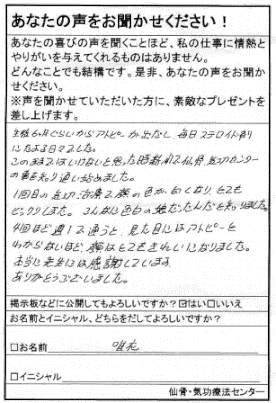 あなたの声をお聞かせください！
あなたの喜びの声を聞くことほど、私の仕事に情熱と
やりがいを与えてくれるものはありません。
どんなことでも結構です。是非、あなたの声をお聞か
せください。
※声を聞かせていただいた方に、素敵なプレゼントを
差し上げます。
生後6ヶ月ぐらいからアトピーが出だし、毎日ステロイド剤
にたよる日々でした。
このままではいけないと思った時期に仙骨気功センター
の事を知り通い始めました。
1回目の気功治療で顔の色が白くなり、とても
ビックリしました。こんなに色白の娘だったんだと知りました。
4回ほど通って、見た目にはアトピーと
わからないほど、顔はとてもきれいになりました。
本当に先生には感謝しています
ありがとうございました。
掲示板などに公開してもよろしいですか？☑はい□いいえ
お名前とイニシャル、どちらをだしてよろしいですか？
□お名前
□イニシャル
仙骨・気功療法センター